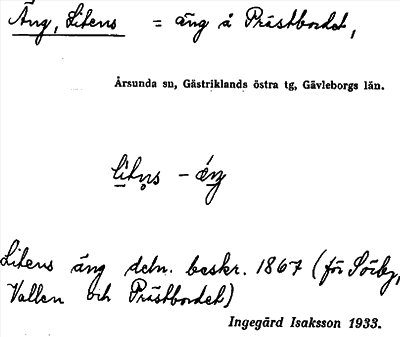 Äng, Litens = äng å Prästbordet,
Årsunda sn, Gästriklands östra tg, Gävleborgs län.
lítn̥s - ǽŋ
Litens äng deln. beskr. 1867 (för Sörby,
Vallen och Prästbordet)
Ingegärd Isaksson 1933.